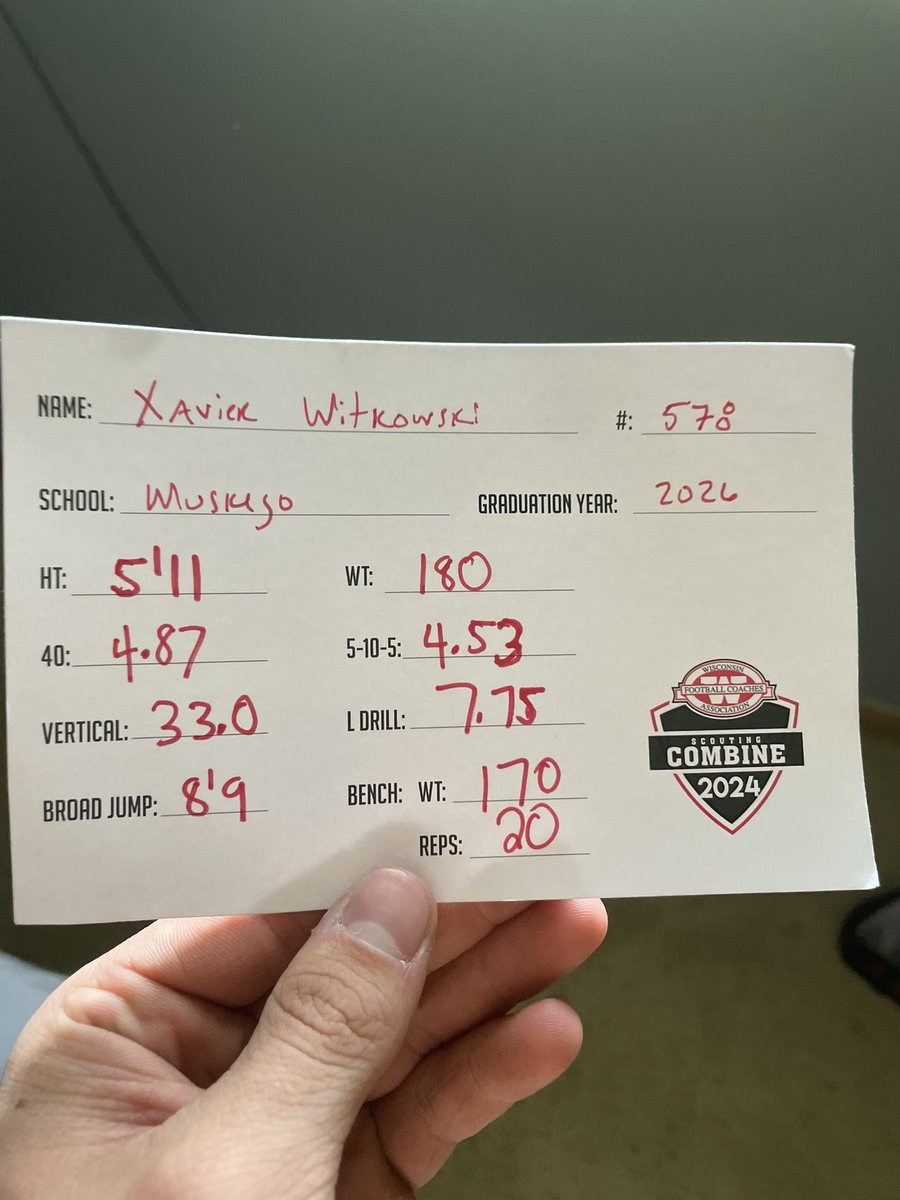 NAME: XAVIER WITKOWSKI #: 578
SCHOOL: Muskego GRADUATION YEAR: 2026
HT: 5'11 WT: 180
40: 4.87 5-10-5: 4.53
VERTICAL: 33.0 L DRILL: 7.75
BROAD JUMP: 8'9 BENCH: WT: 170
REPS: 20
WISCONSIN
FOOTBALL COACHES
ASSOCIATION
SCOUTING
COMBINE
2024